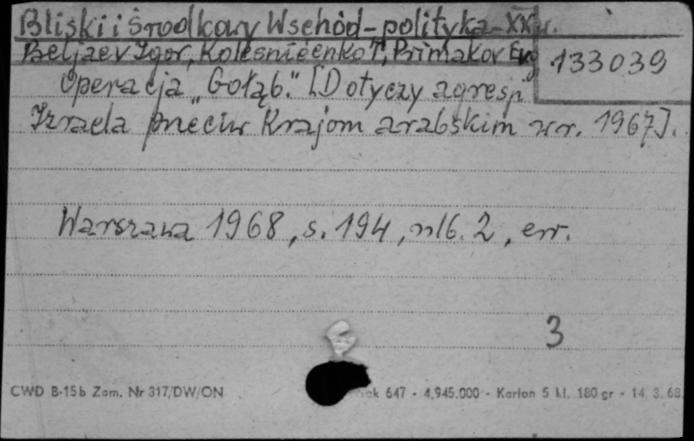 Bliski i Środkowy Wschód - polityka - XX w.
Beljaev Igor, Kolesničenko T, Primakov Evg
133039
Operacja "Gołąb." [Dotyczy agresji
Izraela przeciw Krajom arabskim w r. 1967].
Warszawa 1968, s. 194, nlb. 2, err.
3
CWD B-15b Zam. Nr 317/DW/ON
647 - 4.945.000 - Karton 5 kl. 180 gr - 14. 3. 68.